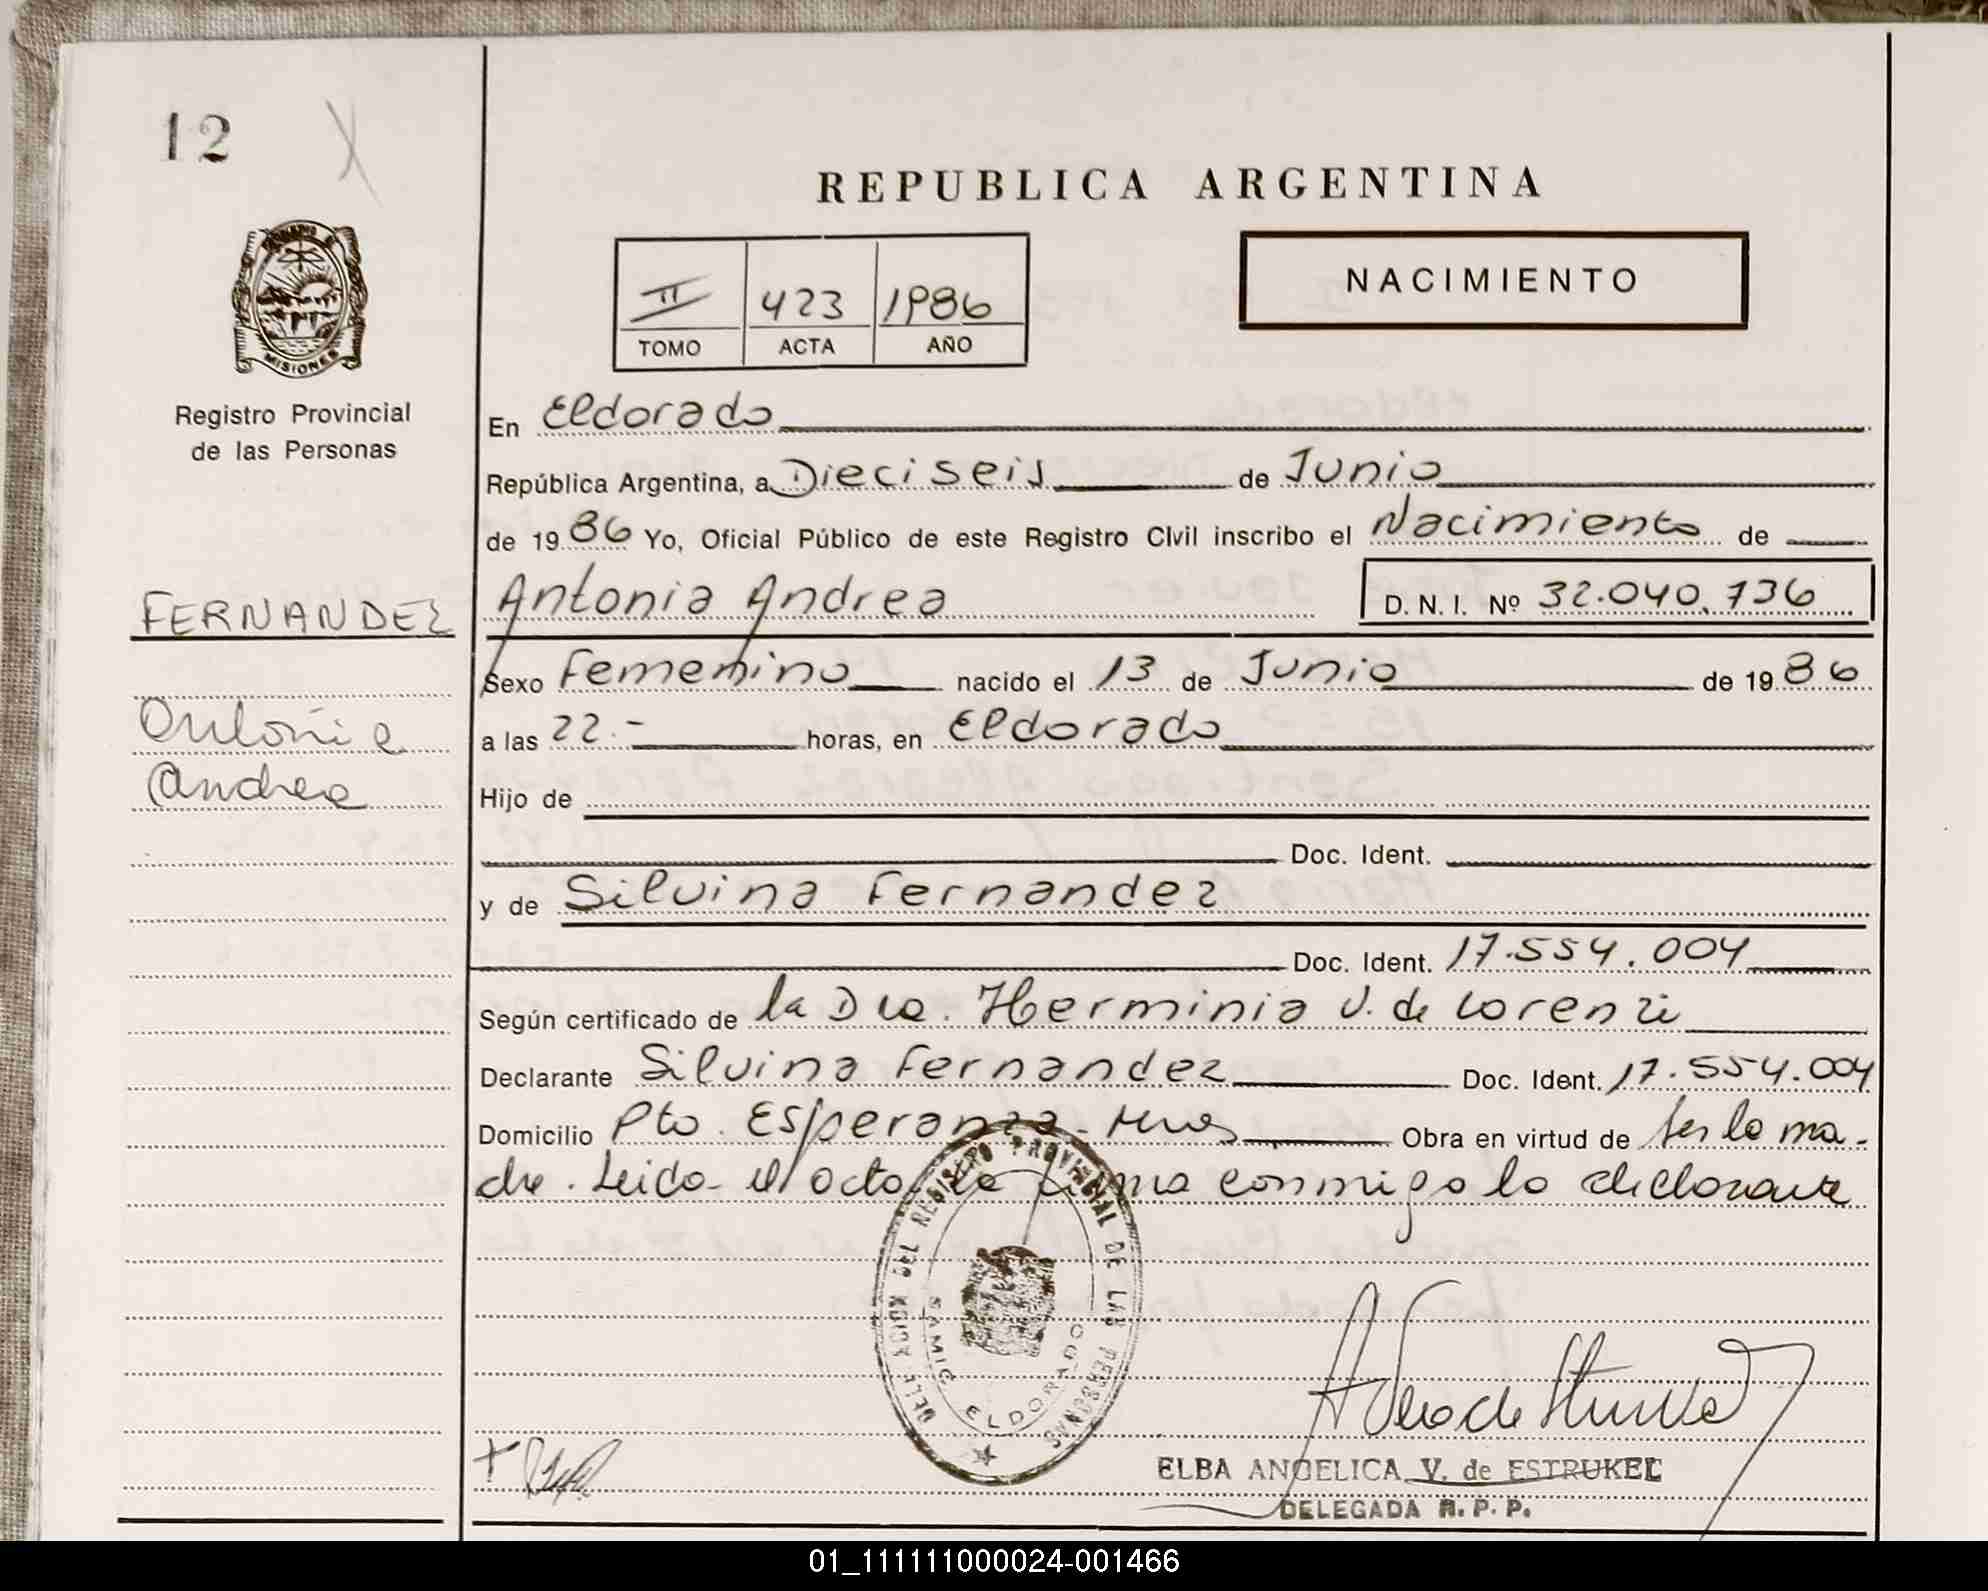 12
REPUBLICA ARGENTINA
NACIMIENTO
II 423 1986
TOMO ACTA AÑO
MISIONES
Registro Provincial
de las Personas
FERNANDEZ
Antonia
Andrea
En Eldorado
República Argentina, a Dieciseis de Junio
de 1986 Yo, Oficial Público de este Registro Civil inscribo el Nacimiento de
Antonia Andrea D. N. I. Nº 32.040.736
Sexo Femenino nacido el 13 de Junio de 1986
a las 22.- horas, en Eldorado
Hijo de
Doc. Ident.
y de Silvina Fernandez
Doc. Ident. 17.554.004
Según certificado de la Dra. Herminia V. de Lorenzi
Declarante Silvina Fernandez Doc. Ident. 17.554.004
Domicilio Pto. Esperanza - Mnes Obra en virtud de ser la ma-
dre. Leida el acta, la firma conmigo la declarante
DELEGACION DEL REGISTRO PROVINCIAL DE LAS PERSONAS
SAMIC ELDORADO
ELBA ANGELICA V. de ESTRUKEL
DELEGADA R. P. P.
01_111111000024-001466